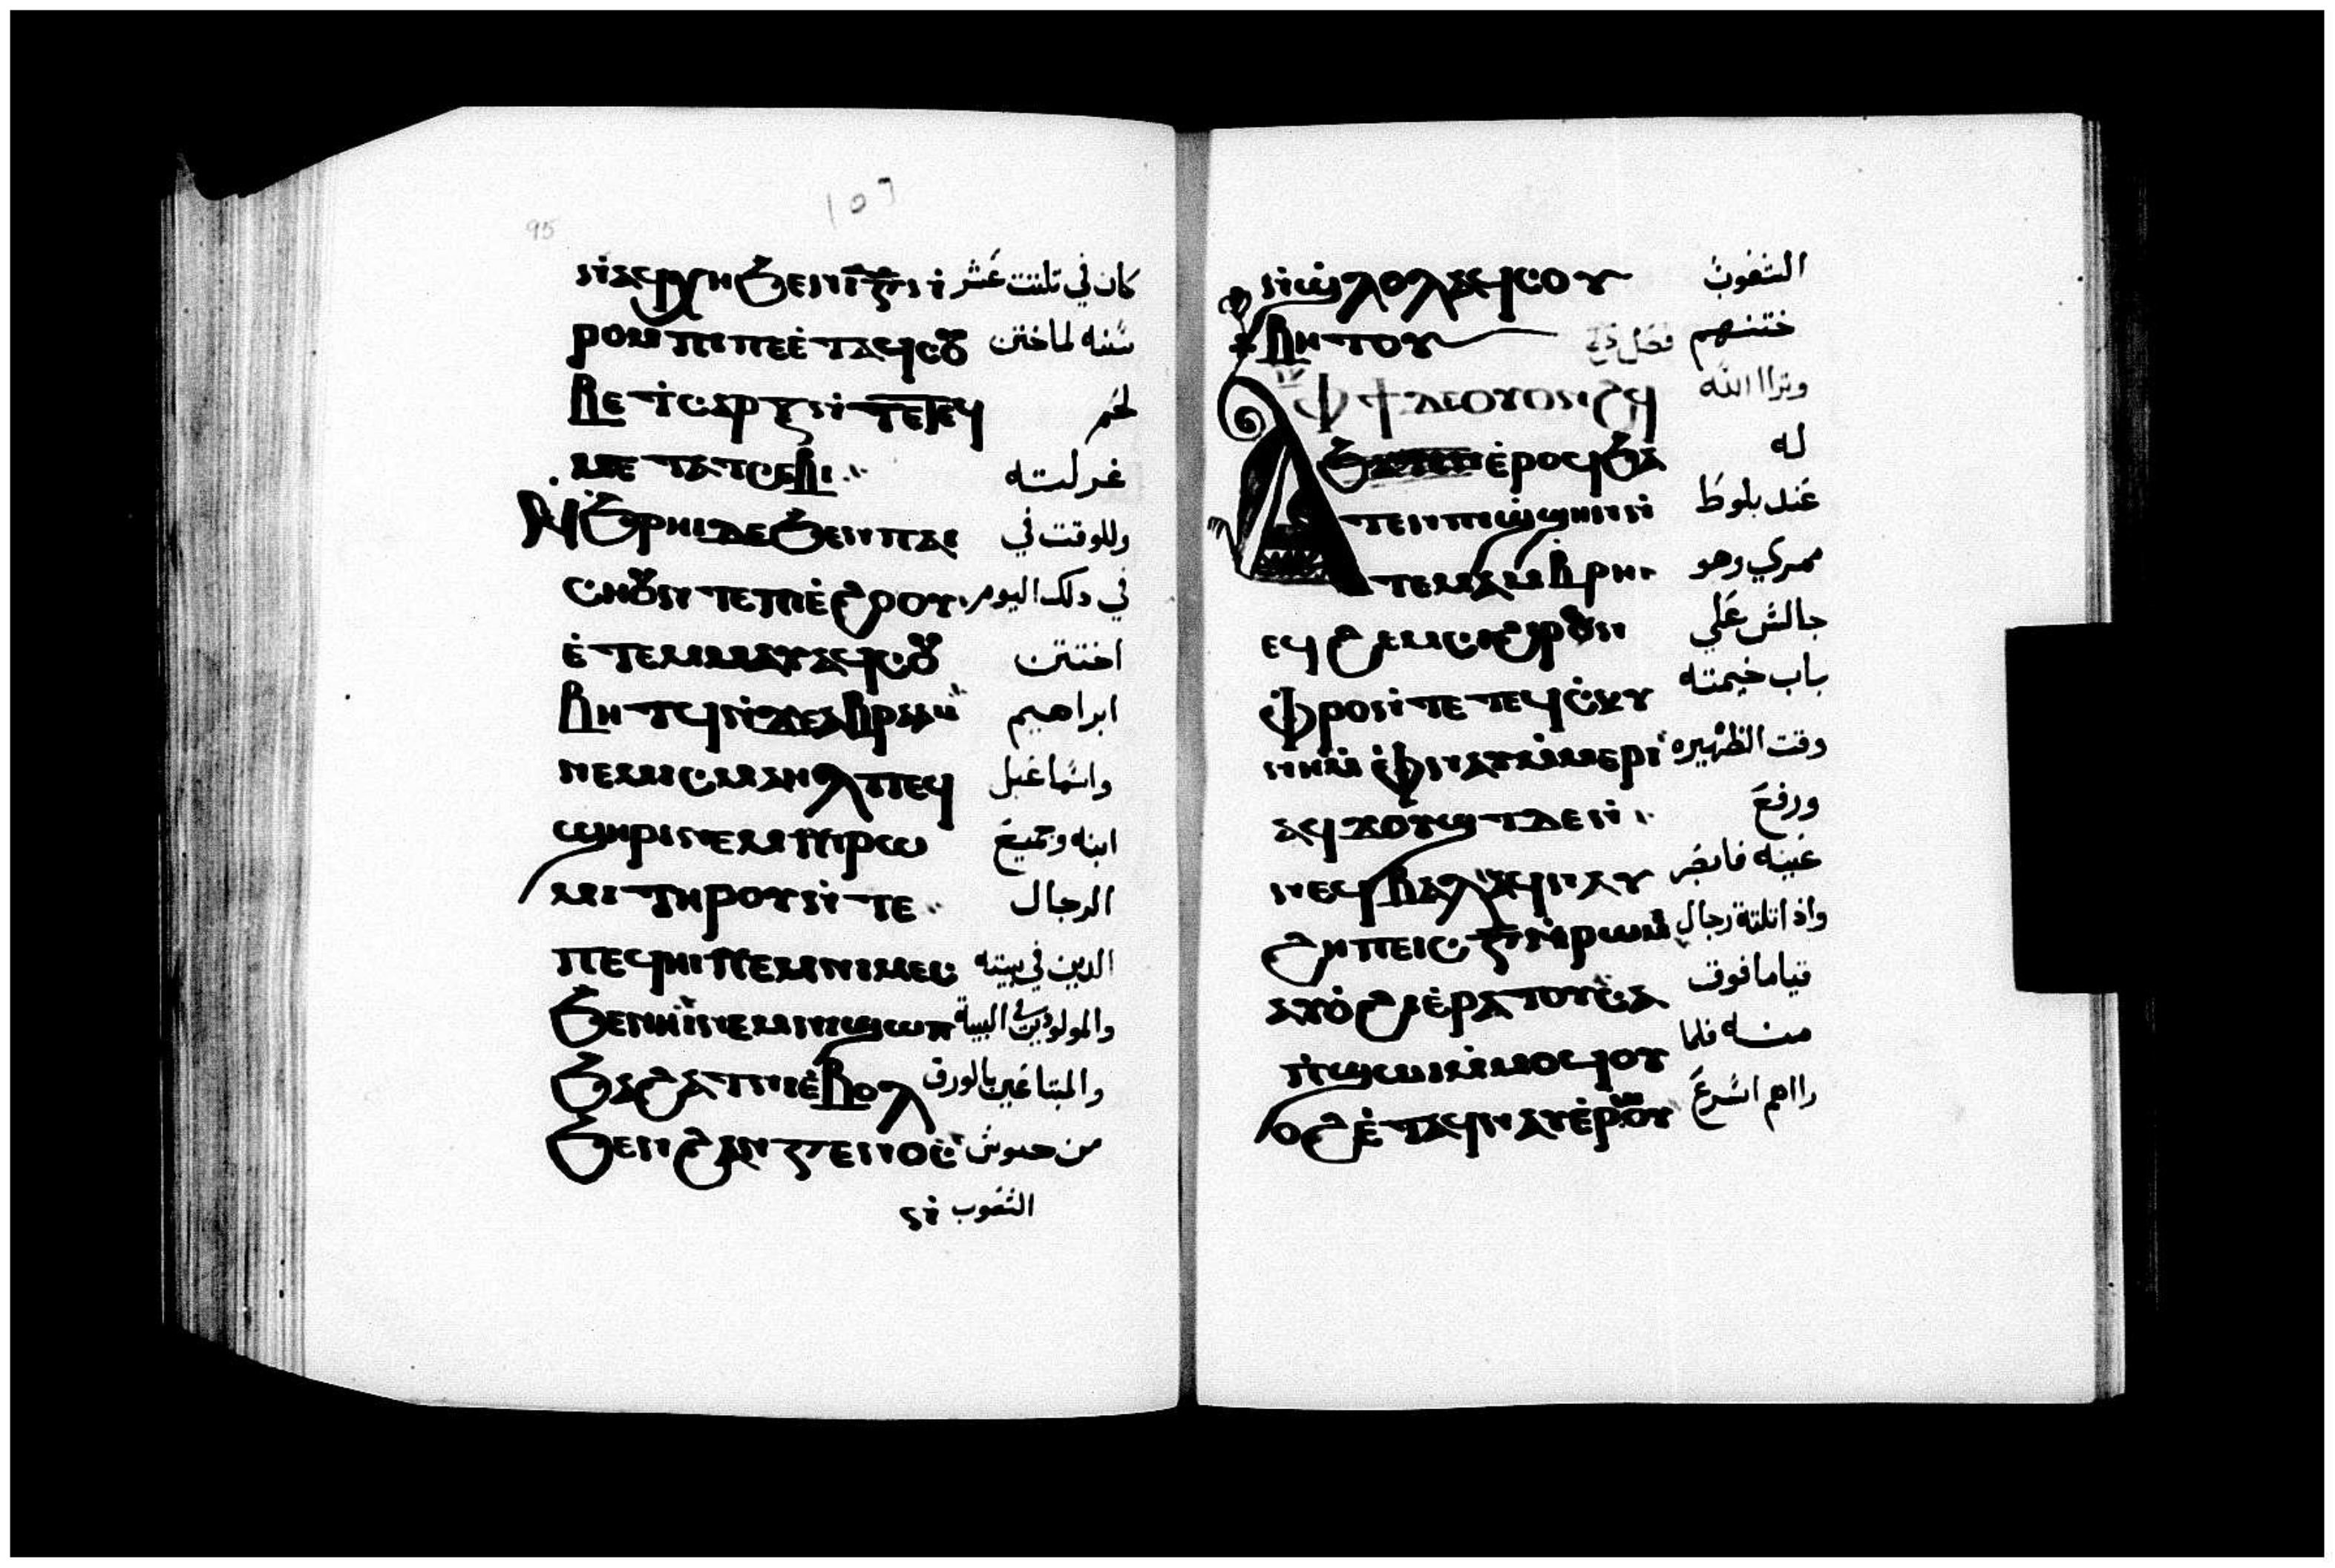 95
ⲛⲁϥⲭⲏϧⲉⲛⲓⲅⲛ̀ كان في تلتت عشر
ⲣⲟⲙⲡⲓⲡⲉⲉ̀ⲧⲁϥⲥⲟⲩ سنه لما ختن
ⲃⲉⲧⲥⲁⲣⲝⲛ̀ⲧⲉϥ لحم
ⲙⲉⲧⲁⲧⲥⲉⲃⲓ غرلته
ⲛ̀ϧⲣⲏⲓⲇⲉϧⲉⲛⲡⲁⲓ وللوقت في
ⲥⲏⲟⲩⲛ̀ⲧⲉⲡⲓⲉ̀ϩⲟⲟⲩ في دلك اليوم
ⲉ̀ⲧⲉⲙⲙⲁⲩⲁϥⲥⲟⲩ اختتن
ⲃⲏⲧϥⲛ̀ϫⲉⲁⲃⲣⲁⲁⲙ ابراهيم
ⲛⲉⲙⲓⲥⲙⲁⲏⲗⲡⲉϥ واسماعيل
ϣⲏⲣⲓⲛⲉⲙⲛⲓⲣⲱ ابنه وجميع
ⲙⲓⲧⲏⲣⲟⲩⲛ̀ⲧⲉ الرجال
ⲡⲉϥⲏⲓⲛⲉⲙⲛⲓⲙⲉⲥ الدين في بيته
ϧⲉⲛⲏⲓⲛⲉⲙⲛⲓϣⲱⲡ والمولودين في البيت
ϧⲁϩⲁⲧⲛⲓⲉ̀ⲃⲟⲗ والمبتاعين بالورق
ϧⲉⲛϩⲁⲛⲅⲉⲛⲟⲥ من جنوس
الشعوب ⲛ̀
ⲛ̀ϣⲗⲟⲗⲁϥⲥⲟⲩ الشعوب
ⲃⲏⲧⲟⲩ ختنهم
ⲁⲫϯⲇⲉⲟⲩⲟⲛϩϥ وترااا الله
ⲉ̀ⲣⲟϥϧⲁ له
ⲧⲉⲛⲡⲓϣϣⲏⲛⲛ̀ عند بلوط
ⲧⲉⲙⲁⲙⲃⲣⲏ ممري وهو
ⲉϥϩⲉⲙⲥⲓϩⲓⲣⲟⲩⲛ جالس علي
ⲫⲣⲟⲛ̀ⲧⲉⲧⲉϥⲥⲕⲩ باب خيمته
ⲛⲏⲙ̀ⲫⲛⲁⲩⲙ̀ⲙⲉⲣⲓ وقت الظهيره
ⲁϥϫⲟⲩϣⲧⲇⲉⲛ̀ ورفع
ⲛⲉϥⲃⲁⲗⲁϥⲛⲁⲩ عينه فابصر
ϩⲏⲡⲡⲉⲓⲥⲅⲛ̀ⲣⲱⲙⲓ واذا تلتة رجال
ⲁⲩⲟ̀ϩⲓⲉ̀ⲣⲁⲧⲟⲩⲥⲁ قياما فوق
ⲡ̀ϣⲱⲓⲙ̀ⲙⲟϥⲟⲩ منه فلما
ⲟϩⲉ̀ⲧⲁϥⲛⲁⲩⲉ̀ⲣⲱⲟⲩ رااهم اسرع